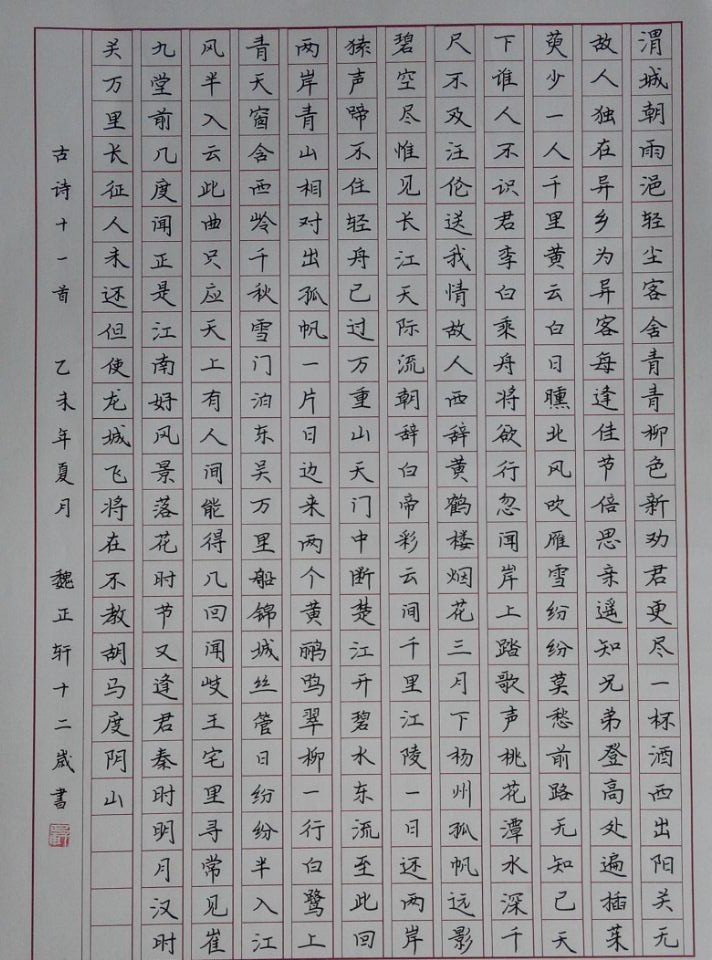 渭城朝雨浥轻尘客舍青青柳色新劝君更尽一杯酒西出阳关无
故人独在异乡为异客每逢佳节倍思亲遥知兄弟登高处遍插茱
萸少一人千里黄云白日曛北风吹雁雪纷纷莫愁前路无知己天
下谁人不识君李白乘舟将欲行忽闻岸上踏歌声桃花潭水深千
尺不及汪伦送我情故人西辞黄鹤楼烟花三月下杨州孤帆远影
碧空尽惟见长江天际流朝辞白帝彩云间千里江陵一日还两岸
猿声啼不住轻舟已过万重山天门中断楚江开碧水东流至此回
两岸青山相对出孤帆一片日边来两个黄鹂鸣翠柳一行白鹭上
青天窗含西岭千秋雪门泊东吴万里船锦城丝管日纷纷半入江
风半入云此曲只应天上有人间能得几回闻岐王宅里寻常见崔
九堂前几度闻正是江南好风景落花时节又逢君秦时明月汉时
关万里长征人未还但使龙城飞将在不教胡马度阴山
古诗十一首 乙未年夏月 魏正轩十二岁書